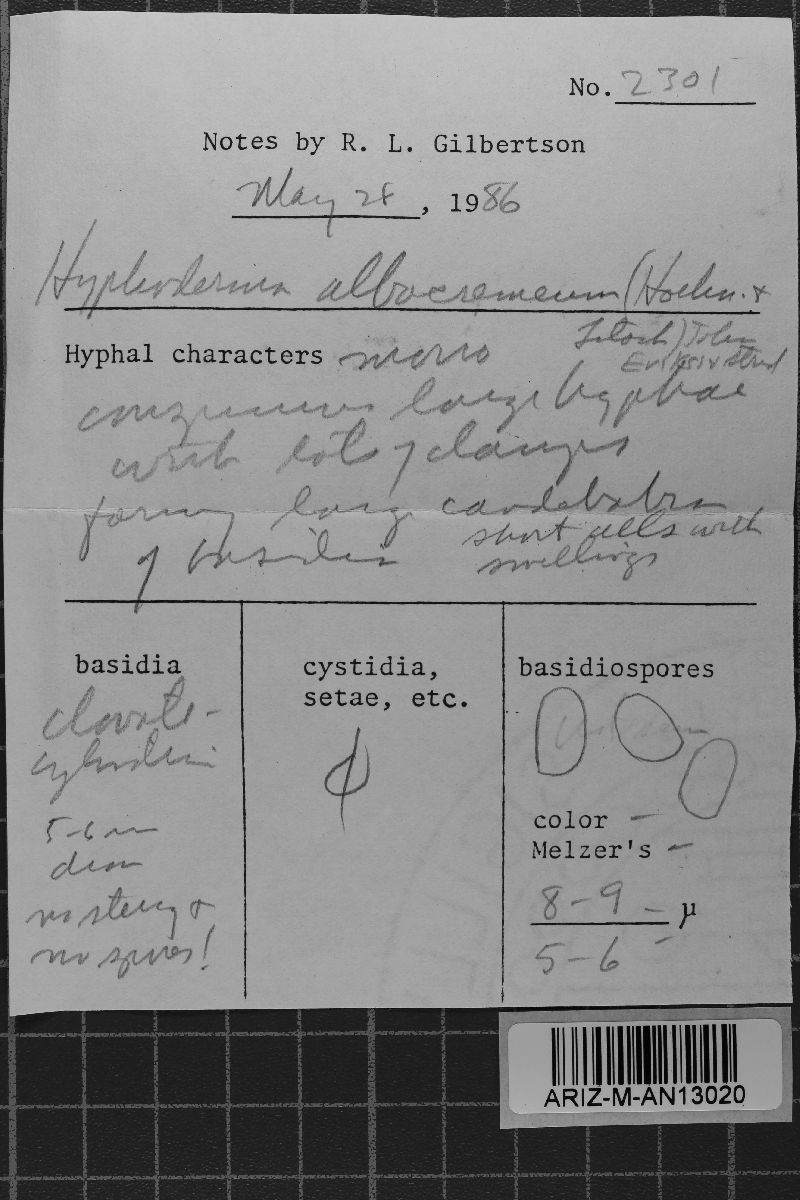 No. 2301
Notes by R. L. Gilbertson
May 28, 1986
Hyphoderma albocremeum (Hoehn. &
Litsch) John
Erikss & Strid
Hyphal characters mono
conspicuous large hyphae
with lots of clamps
forming large candelabra
of basidia short cells with
swellings
basidia
clavate-
cylindric
5-6 
diam
no sterig &
no spores!
cystidia,
setae, etc.
basidiospores
color -
Melzer's -
8-9 - µ
5-6 -
ARIZ-M-AN13020